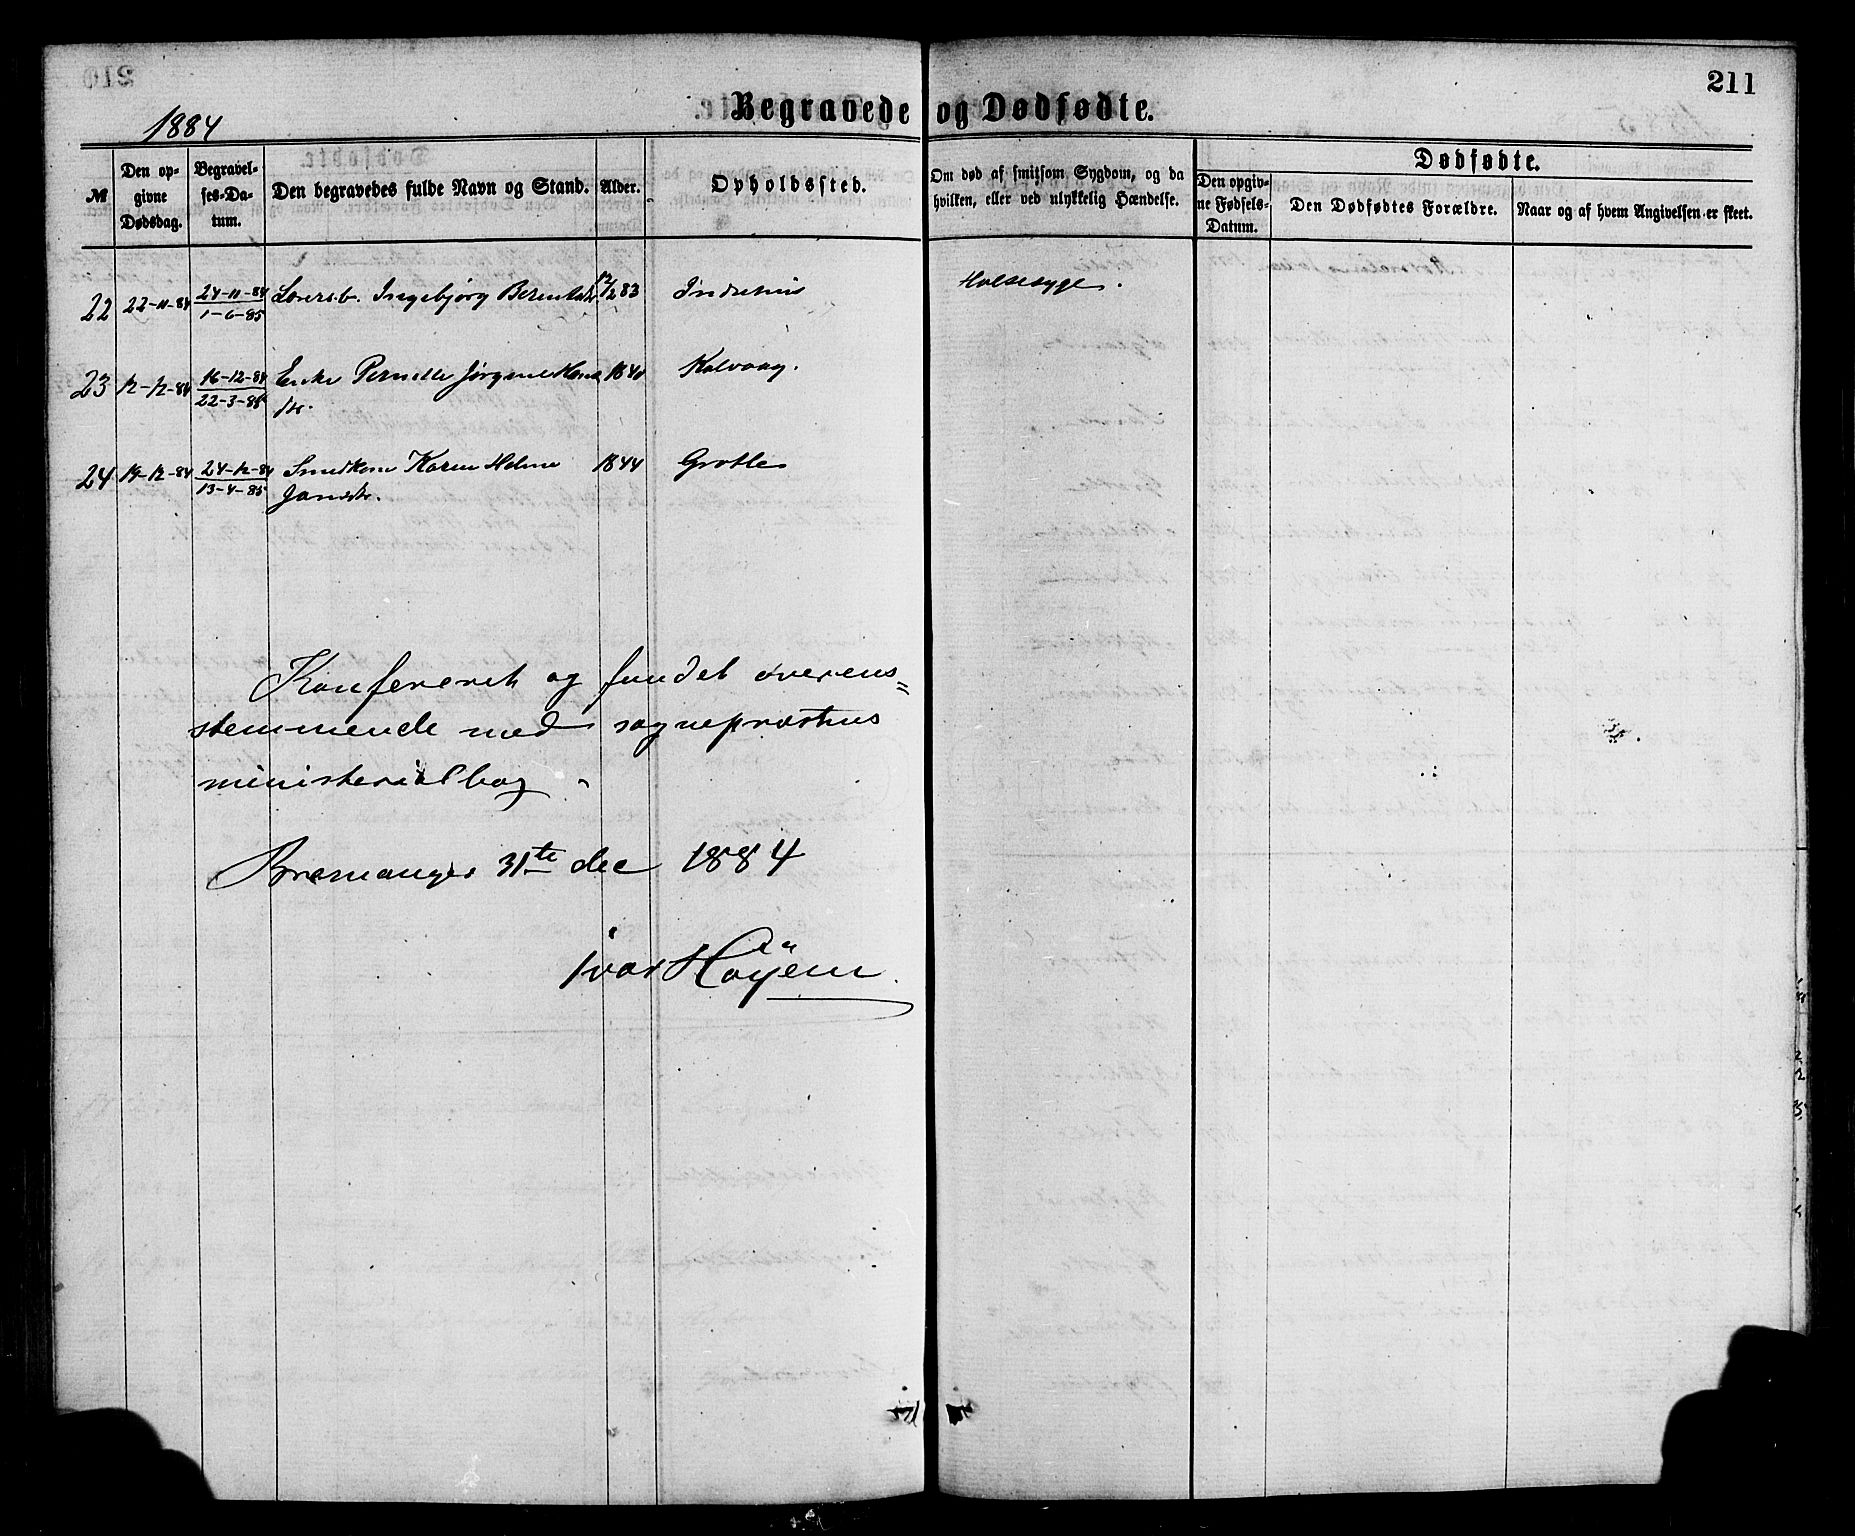 211
Begravede og Dødfødte.
1884
№
Den op-
givne
Dødsdag.
Begravel-
ses-Da-
tum.
Den begravedes fulde Navn og Stand.
Alder.
Opholdssted.
Om død af smitsom Sygdom, og da
hvilken, eller ved ulykkelig Hændelse.
Dødfødte.
Den opgiv-
ne Fødsels-
Datum.
Den Dødfødtes Forældre.
Naar og af hvem Angivelsen er skeet.
22 22-11-84 24-11-84 Ingebjørg 83 Indrehus Halsesyge.
1-6-85
23 12-12-84 16-12-84 Enke Pernille Jørgine 1840 Kalvaag.
22-3-85
24 19-12-84 24-12-84 Smedkone Karen Helene 1844 Grotle
13-4-85 Jansdtr.
Konfereret og fundet overens=
stemmende med sogneprestens
ministerialbog.
Bremanger 31te dec 1884
Ivar Höyem